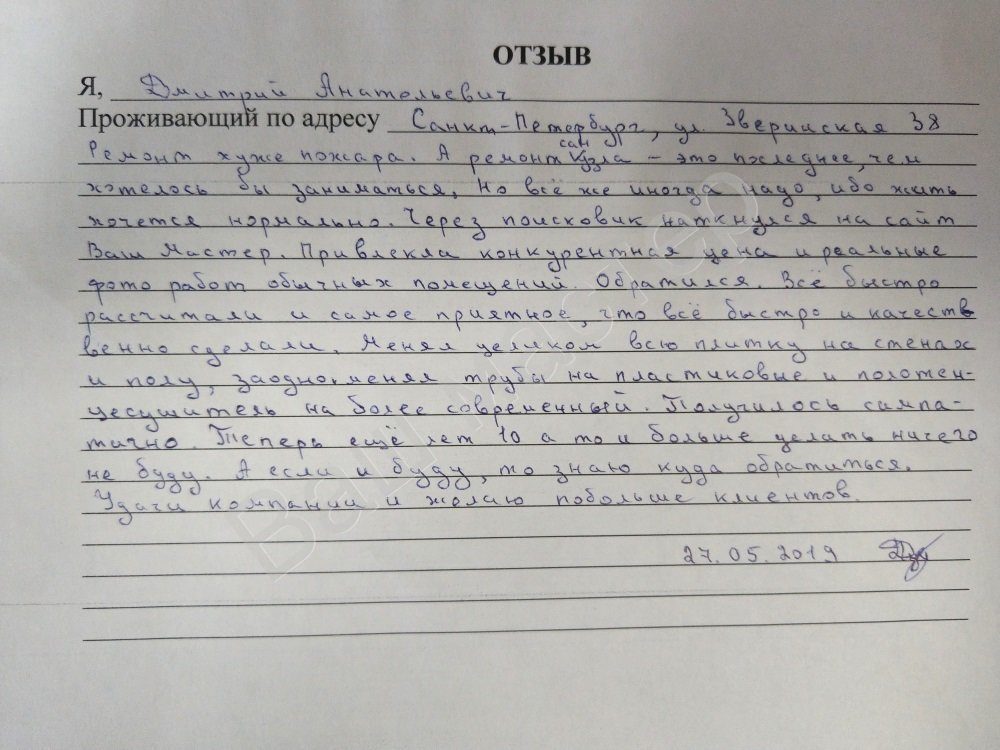 ОТЗЫВ
Я, Дмитрий Анатольевич
Проживающий по адресу Санкт-Петербург, ул. Зверинская 38
Ремонт хуже пожара. А ремонт сан узла – это последнее, чем
хотелось бы заниматься. Но всё же иногда надо, ибо жить
хочется нормально. Через поисковик наткнулся на сайт
Ваш Мастер. Привлекла конкурентная цена и реальные
фото работ обычных помещений. Обратился. Всё быстро
рассчитали и самое приятное, что всё быстро и качеств
венно сделали. Менял целиком всю плитку на стенах
и полу, заодно менял трубы на пластиковые и полотен-
цесушитель на более современный. Получилось симпа-
тично. Теперь ещё лет 10 а то и больше делать ничего
не буду. А если и буду, то знаю куда обратиться.
Удачи компании и желаю побольше клиентов.
27.05.2019
Ваш Мастер